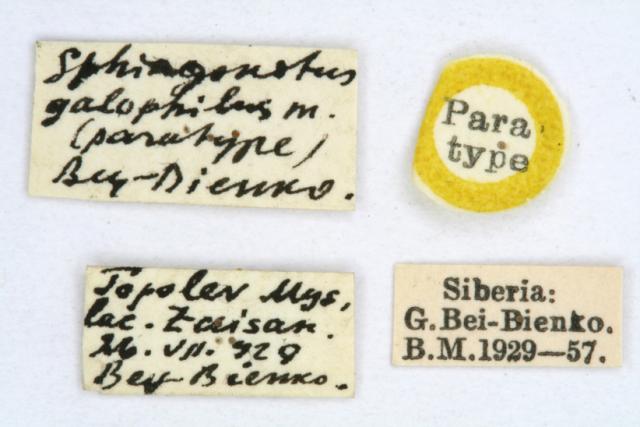 Sphingonotus
galophilus m.
(paratype)
Bey-Bienko.
Para
type
Topolev Mys,
lac. Zaisan.
26. VII. 929
Bey-Bienko.
Siberia:
G. Bei-Bienko.
B.M.1929—57.